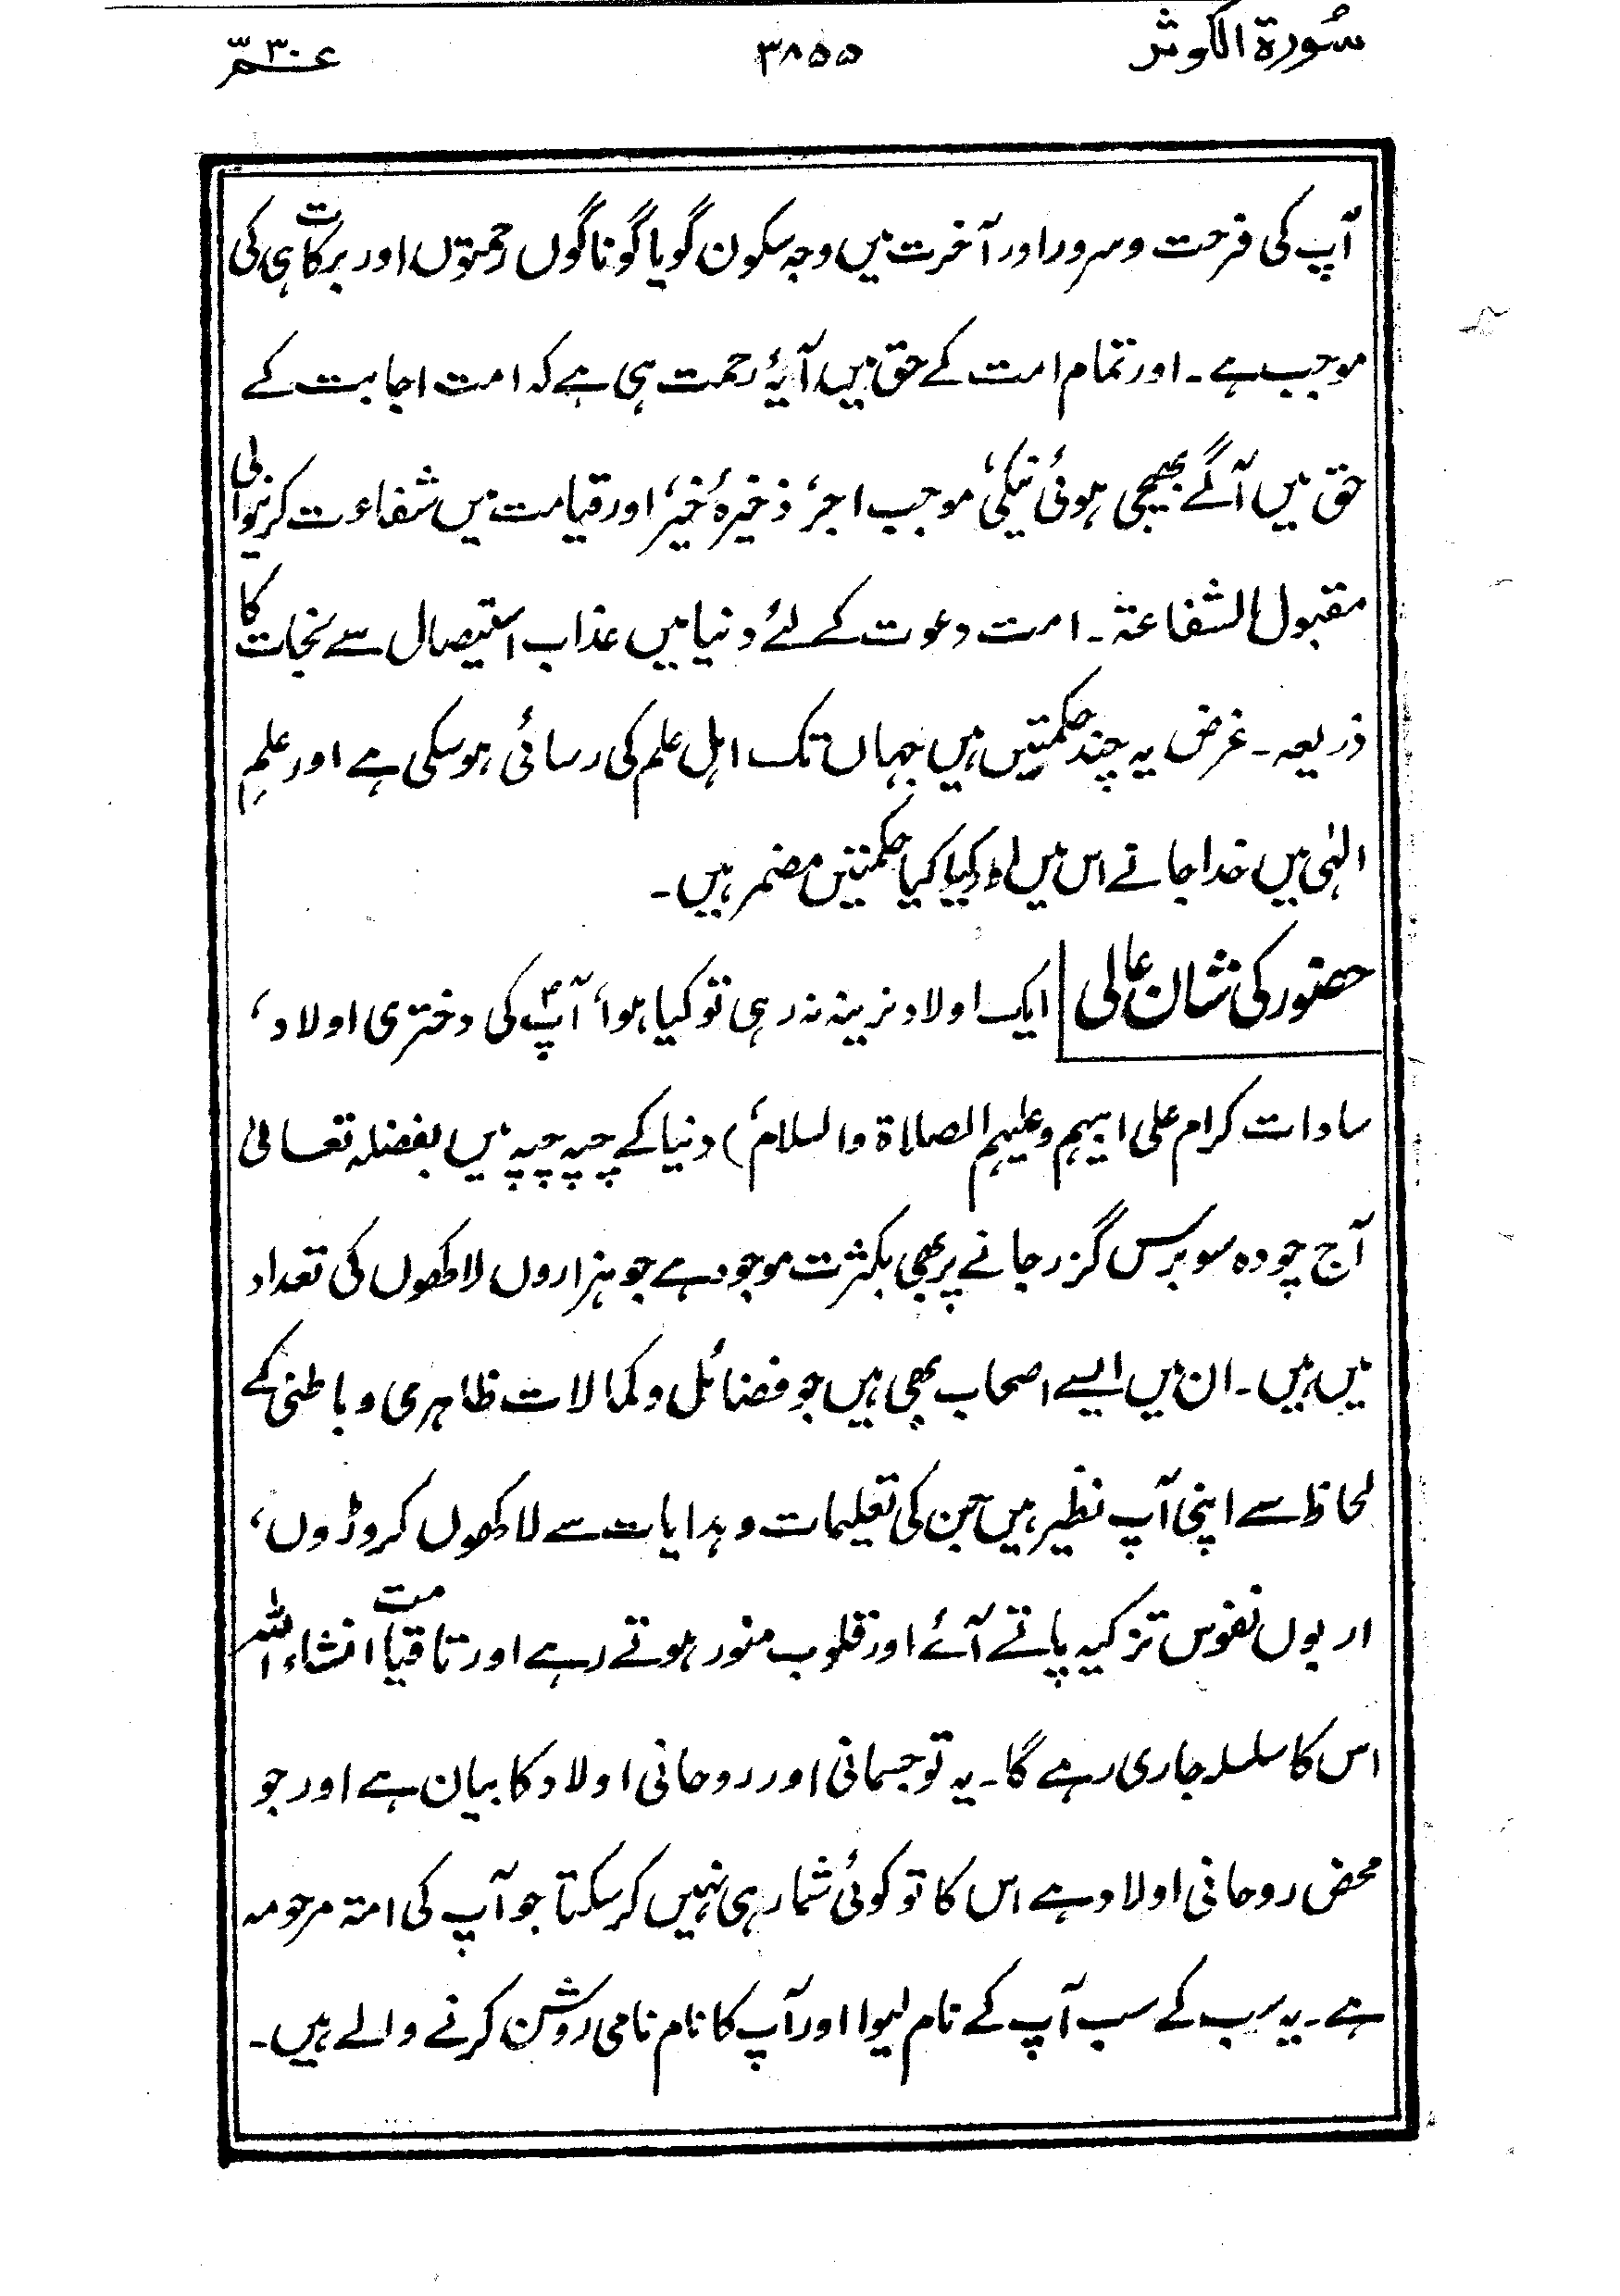 سُورۃ الکوثر ۳۸۵۵ عمّ ۳۰
آپ کی فرحت و سرور اور آخرت میں وجہ سکون گویا گوناگوں رحمتوں اور برکات ہی کی
موجب ہے۔ اور تمام امت کے حق میں آیۂ رحمت ہی ہے کہ امت اجابت کے
حق میں آگے بھیجی ہوئی نیکی، موجب اجر، ذخیرۂ خیر، اور قیامت میں شفاعت کرنیوالی
مقبول الشفاعۃ۔ امت دعوت کے لئے دنیا میں عذاب استیصال سے نجات کا
ذریعہ۔ غرض یہ چند حکمتیں ہیں جہاں تک اہل علم کی رسائی ہوسکی ہے اور علمِ
الہٰی میں خدا جانے اس میں اور کیا کیا حکمتیں مضمر ہیں۔
حضور کی شان عالی ایک اولاد نرینہ نہ رہی تو کیا ہوا، آپؐ کی دختری اولاد،
سادات کرام علی ابیہم وعلیہم الصلاۃ والسلام، ) دنیا کے چپہ چپہ میں بفضلہ تعالیٰ
آج چودہ سو برس گزر جانے پر بھی بکثرت موجود ہے جو ہزاروں لاکھوں کی تعداد
میں ہیں۔ ان میں ایسے اصحاب بھی ہیں جو فضائل و کمالات ظاہری و باطنی کے
لحاظ سے اپنی آپ نظیر ہیں جن کی تعلیمات و ہدایات سے لاکھوں کروڑوں،
اربوں نفوس تزکیہ پاتے آئے اور قلوب منور ہوتے رہے اور تا قیامت انشاء اللہ
اس کا سلسلہ جاری رہے گا۔ یہ تو جسمانی اور روحانی اولاد کا بیان ہے اور جو
محض روحانی اولاد ہے اس کا تو کوئی شمار ہی نہیں کرسکتا جو آپ کی امتہ مرحومہ
ہے۔ یہ سب کے سب آپ کے نام لیوا اور آپ کا نام نامی روشن کرنے والے ہیں۔